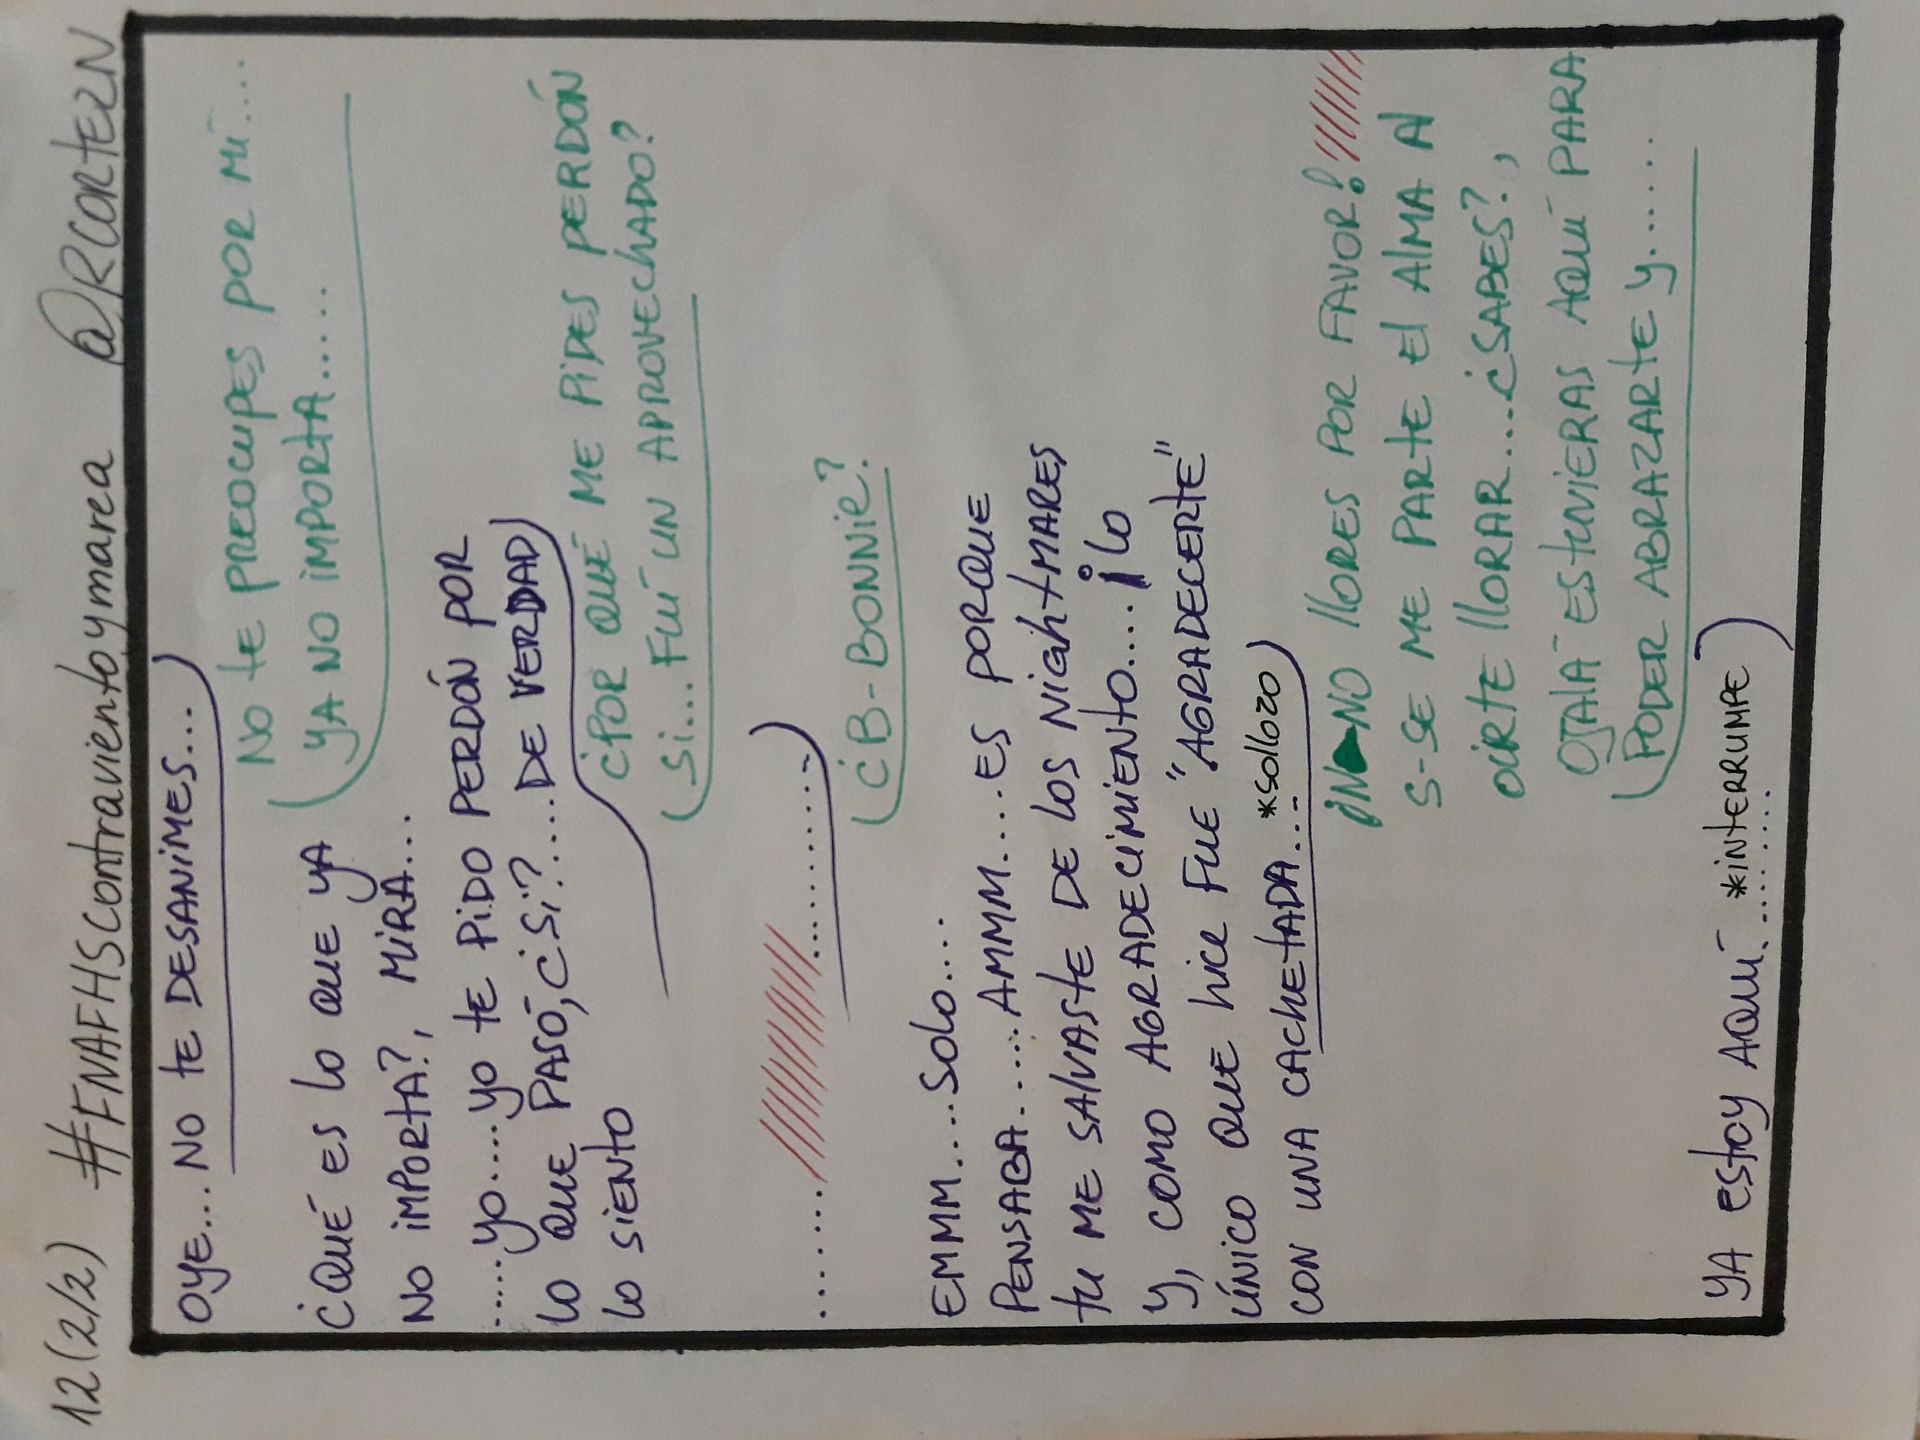 12(2/2) #FNAFHScontravientoymarea @RCORTEZN
OYE...NO tE DESANIMES...
NO tE PREOCUPES POR MÍ....
YA NO IMPORTA.....
¿QUÉ ES lo QUE YA
NO IMPORTA?, MIRA...
.....YO.....YO tE PIDO PERDÓN POR
lo QUE PASÓ, ¿SI?....DE VERDAD
lo SIENTO
¿POR QUÉ ME PIDES PERDÓN
SI...FUÍ UN APROVEChADO?
...................
¿B-BONNIE?
EMMM....Solo....
PENSABA.....AMMM.....ES PORQUE
tU ME SALVASTE DE LOS NIGhtMARES
Y, COMO AGRADECIMIENTO....¡lo
ÚNICO QUE hICE FUE "AGRADECERtE"
CON UNA CAChEtADA... *Sollozo
¡N NO llORES POR FAVOR!
S-SE ME PARTE El AlMA Al
OIRTE llORAR....¿SABES?,
OJALÁ EStUVIERAS AQUÍ PARA
PODER ABRAZARtE Y......
YA EStoy AQUÍ........ *INtERRUMPE